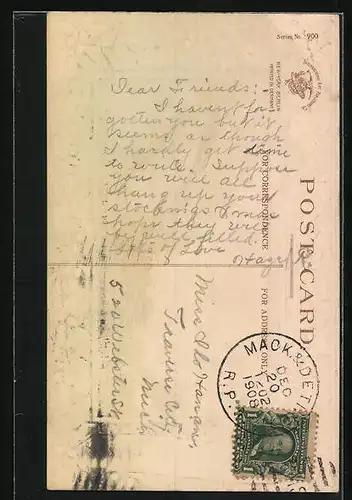 Series No. 900
Dear Friends:-
I havent for
gotten you but it
seems as though
I hardly get time
to write. Suppose
you will all
hang up your
stockings Xmas
hope they will
be well filled
Lots of Love
Hazel
POST CARD
FOR CORRESPONDENCE
FOR ADDRESS ONLY
Miss Hanan,
Traverse City
Mich
520 Webster St
MACK. & DET.
DEC
20
1908
R.P.
1 1